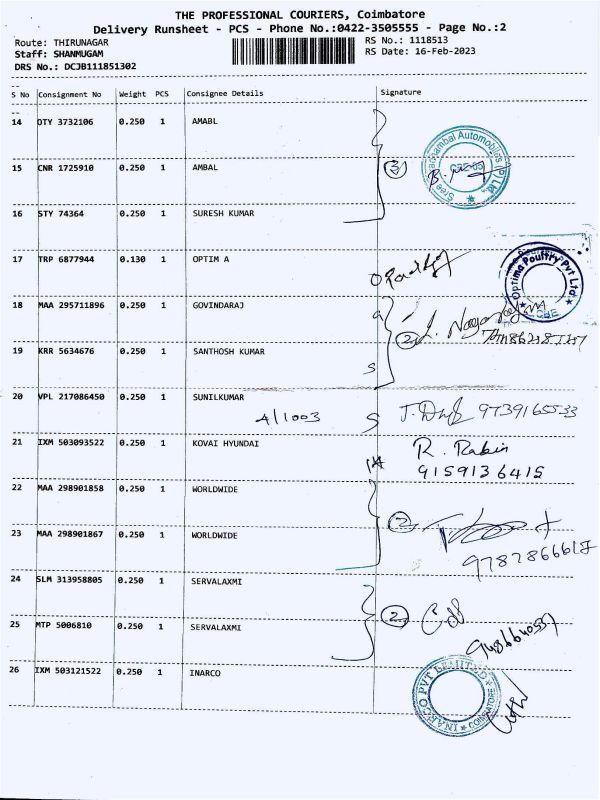 THE PROFESSIONAL COURIERS, Coimbatore
Delivery Runsheet - PCS - Phone No.:0422-3505555 - Page No.:2
Route: THIRUNAGAR
RS No.: 1118513
Staff: SHANMUGAM
RS Date: 16-Feb-2023
DRS No.: DCJB111851302
S No Consignment No Weight PCS Consignee Details Signature
14 OTY 3732106 0.250 1 AMABL
15 CNR 1725910 0.250 1 AMBAL
3
Automobiles
16 STY 74364 0.250 1 SURESH KUMAR
17 TRP 6877944 0.130 1 OPTIM A
Optima Poultry Pvt Ltd
18 MAA 295711896 0.250 1 GOVINDARAJ
2
19 KRR 5634676 0.250 1 SANTHOSH KUMAR
S
20 VPL 217086450 0.250 1 SUNILKUMAR
4/1003 S 9739165533
21 IXM 503093522 0.250 1 KOVAI HYUNDAI
R. Rabin
9159136415
22 MAA 298901858 0.250 1 WORLDWIDE
2
23 MAA 298901867 0.250 1 WORLDWIDE
24 SLM 313958805 0.250 1 SERVALAXMI
2
25 MTP 5006810 0.250 1 SERVALAXMI
26 IXM 503121522 0.250 1 INARCO
INARCO PVT LIMITED
COIMBATORE